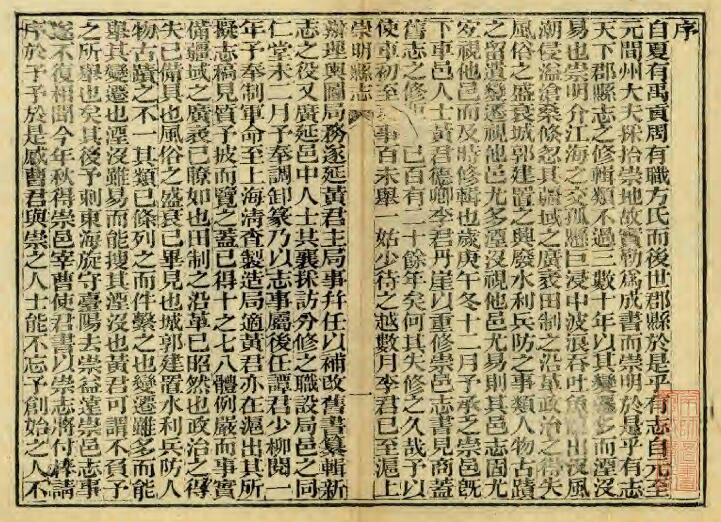 序
自夏有禹貢周有職方氏而後世郡縣於是乎有志自元至
元間州大夫採拾崇地故實勒為成書而崇明於是乎有志
天下郡縣志之修輯類不過三數十年以其變遷多而湮沒
易也崇明介江海之交孤懸巨浸中波濤吞吐魚龍出沒風
潮侵溢滄桑倏忽其疆域之廣袤田制之沿革政治之得失
風俗之盛衰城郭建置之興廢水利兵防之事類人物古蹟
之留遺變遷視他邑尤多湮沒視他邑尤易則其邑志固尤
宜視他邑而及時修輯也歲庚午冬十二月予承乏崇邑既
下車邑人士黃君德卿李君丹崖以重修崇邑志書見商蓋
舊志之修已百有二十餘年矣何其失修之久哉予以
使車初至事百未舉一姑少待之越數月李君已至滬上
崇明縣志
一
辦理輿圖局務遂延黃君主局事幷任以補改舊書纂輯新
志之役又廣延邑中人士共襄採訪分修之職設局邑之同
仁堂未二月予奉調卸篆乃以志事屬後任譚君少柳閱一
年予奉制軍命至上海清查製造局適黃君亦在滬出其所
擬志稿見質予披而覽之蓋已得十之七八體例嚴而事實
備疆域之廣袤已瞭如也田制之沿革已昭然也政治之得
失已備具也風俗之盛衰已畢見也城郭建置水利兵防人
物古蹟之不一其類已條列之而件繫之也變遷雖多而能
舉其變遷也湮沒雖易而能搜其湮沒也黃君可謂不負予
之所舉也矣其後予刺東海旋守臺陽去崇益遠崇邑志事
遂不復相聞今年秋得崇邑宰曹使君書以崇志將付棒請
序於予予於是感曹君與崇之人士能不忘予創始之人不